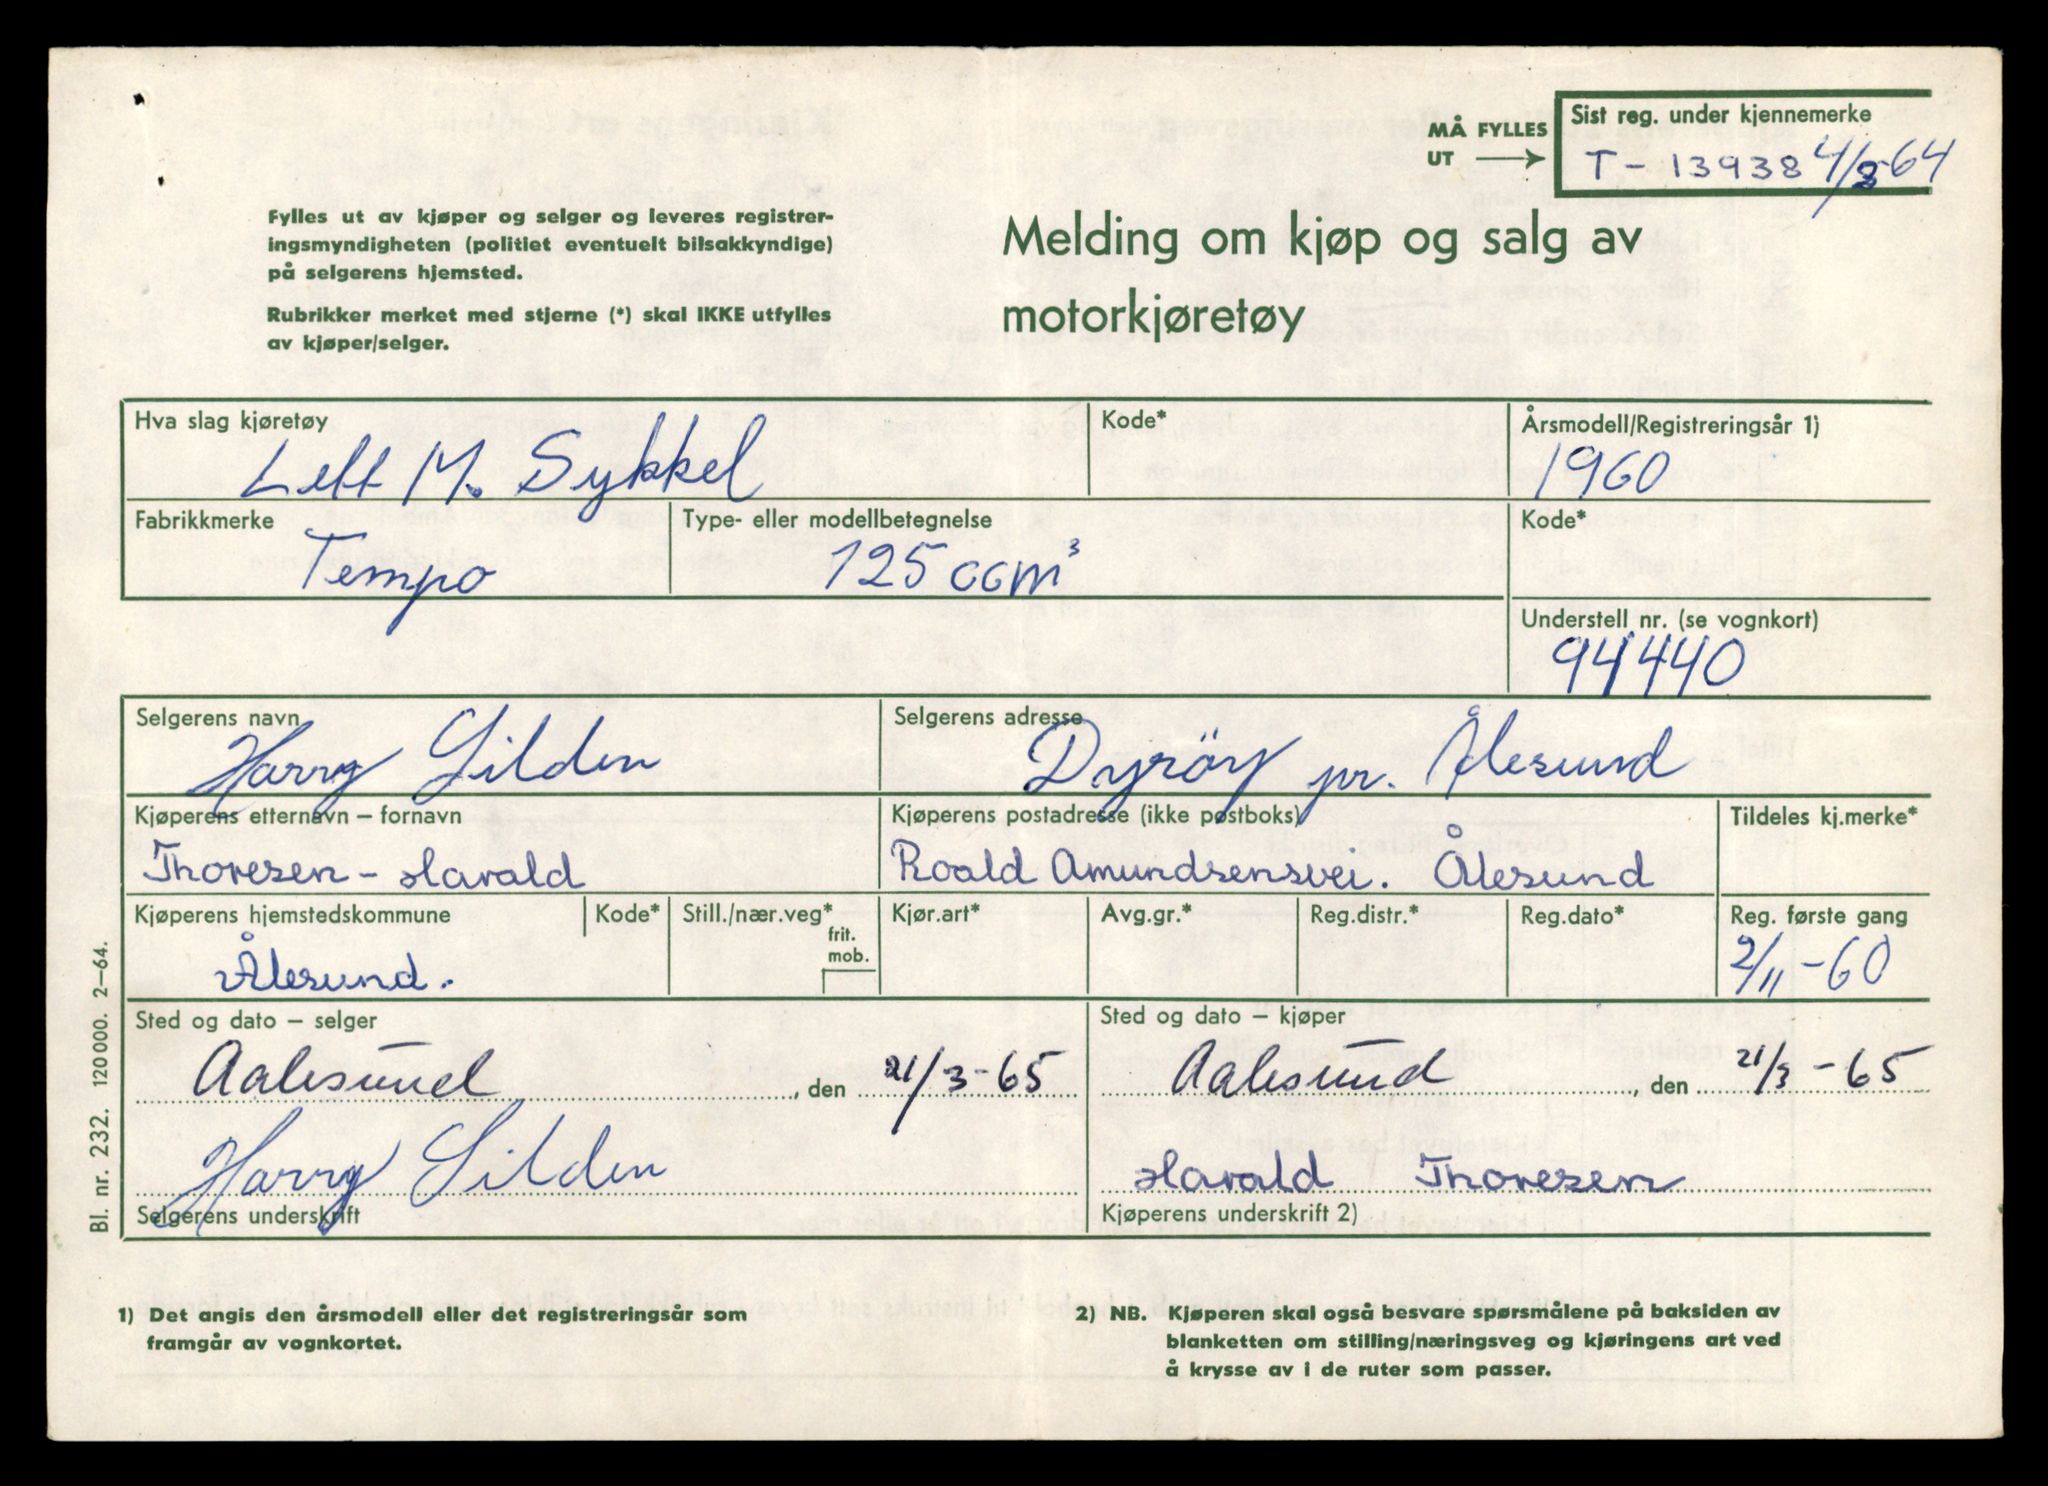 MÅ FYLLES
UT
Sist reg. under kjennemerke
T - 13938 4/8-64
Fylles ut av kjøper og selger og leveres registrer-
ingsmyndigheten (politiet eventuelt bilsakkyndige)
på selgerens hjemsted.
Rubrikker merket med stjerne (*) skal IKKE utfylles
av kjøper/selger.
Melding om kjøp og salg av
motorkjøretøy
Hva slag kjøretøy
Lett M. Sykkel
Kode*
Årsmodell/Registreringsår 1)
1960
Fabrikkmerke
Tempo
Type- eller modellbetegnelse
125 ccm³
Kode*
Understell nr. (se vognkort)
94440
Selgerens navn
Harry Silden
Selgerens adresse
Dyröy pr. Ålesund
Kjøperens etternavn – fornavn
Thoresen - Harald
Kjøperens postadresse (ikke postboks)
Roald Amundsensvei. Ålesund
Tildeles kj.merke*
Kjøperens hjemstedskommune
Ålesund.
Kode*
Still./nær.veg*
frit.
mob.
Kjør.art*
Avg.gr.*
Reg.distr.*
Reg.dato*
Reg. første gang
2/11-60
Sted og dato – selger
Aalesund, den 21/3-65
Sted og dato – kjøper
Aalesund, den 21/3-65
Harry Silden
Selgerens underskrift
Harald Thoresen
Kjøperens underskrift 2)
Bl. nr. 232. 120 000. 2–64.
1) Det angis den årsmodell eller det registreringsår som
framgår av vognkortet.
2) NB. Kjøperen skal også besvare spørsmålene på baksiden av
blanketten om stilling/næringsveg og kjøringens art ved
å krysse av i de ruter som passer.